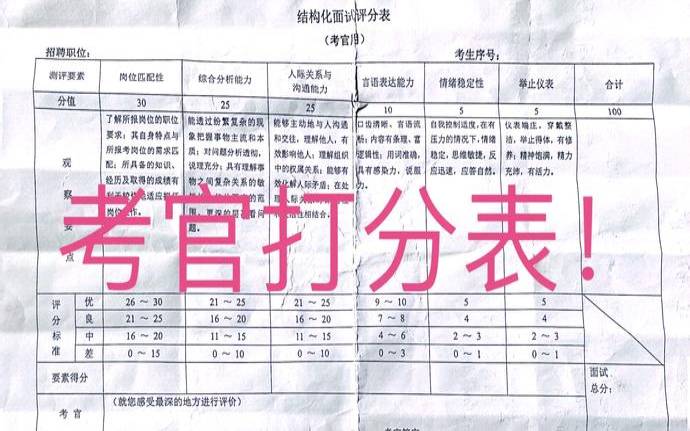 结构化面试评分表
（考官用）
招聘职位： 考生序号：
测评要素 岗位匹配性 综合分析能力 人际关系与沟通能力 言语表达能力 情绪稳定性 举止仪表 合计
分值 30 25 25 10 5 5 100
观察要点
了解所报岗位的职位
要求；其自身特点与
所报考岗位的需求匹
配；所具备的知识、
经历及取得的成绩有
能透过纷繁复杂的现
象把握事物主流和本
质；对问题分析透彻，
说理充分；具有理解事
物之间复杂关系的敏
能够主动地与人沟通
和交往，理解他人，有
效影响他人；理解组织
中的权属关系；能够有
效化解人际矛盾；在处
口齿清晰、言语流
畅；内容有条理、富
逻辑性；用词准确，
具有感染力，说服
力。
自我控制适度，在有
压力的情况下，情绪
稳定，思维敏捷，反
应迅速，应答自然。
仪表端庄，穿戴整
洁，举止得体，有修
养；精神饱满，精力
充沛，有活力。
考官打分表！
评分标准
优 26～30 21～25 21～25 9～10 5 5
良 21～25 16～20 16～20 7～8 4 4
中 16～20 11～15 11～15 4～6 2～3 2～3
差 0～15 0～10 0～10 0～3 0～1 0～1
要素得分
面试
总分：
考官
（就您感受最深的地方进行评价）